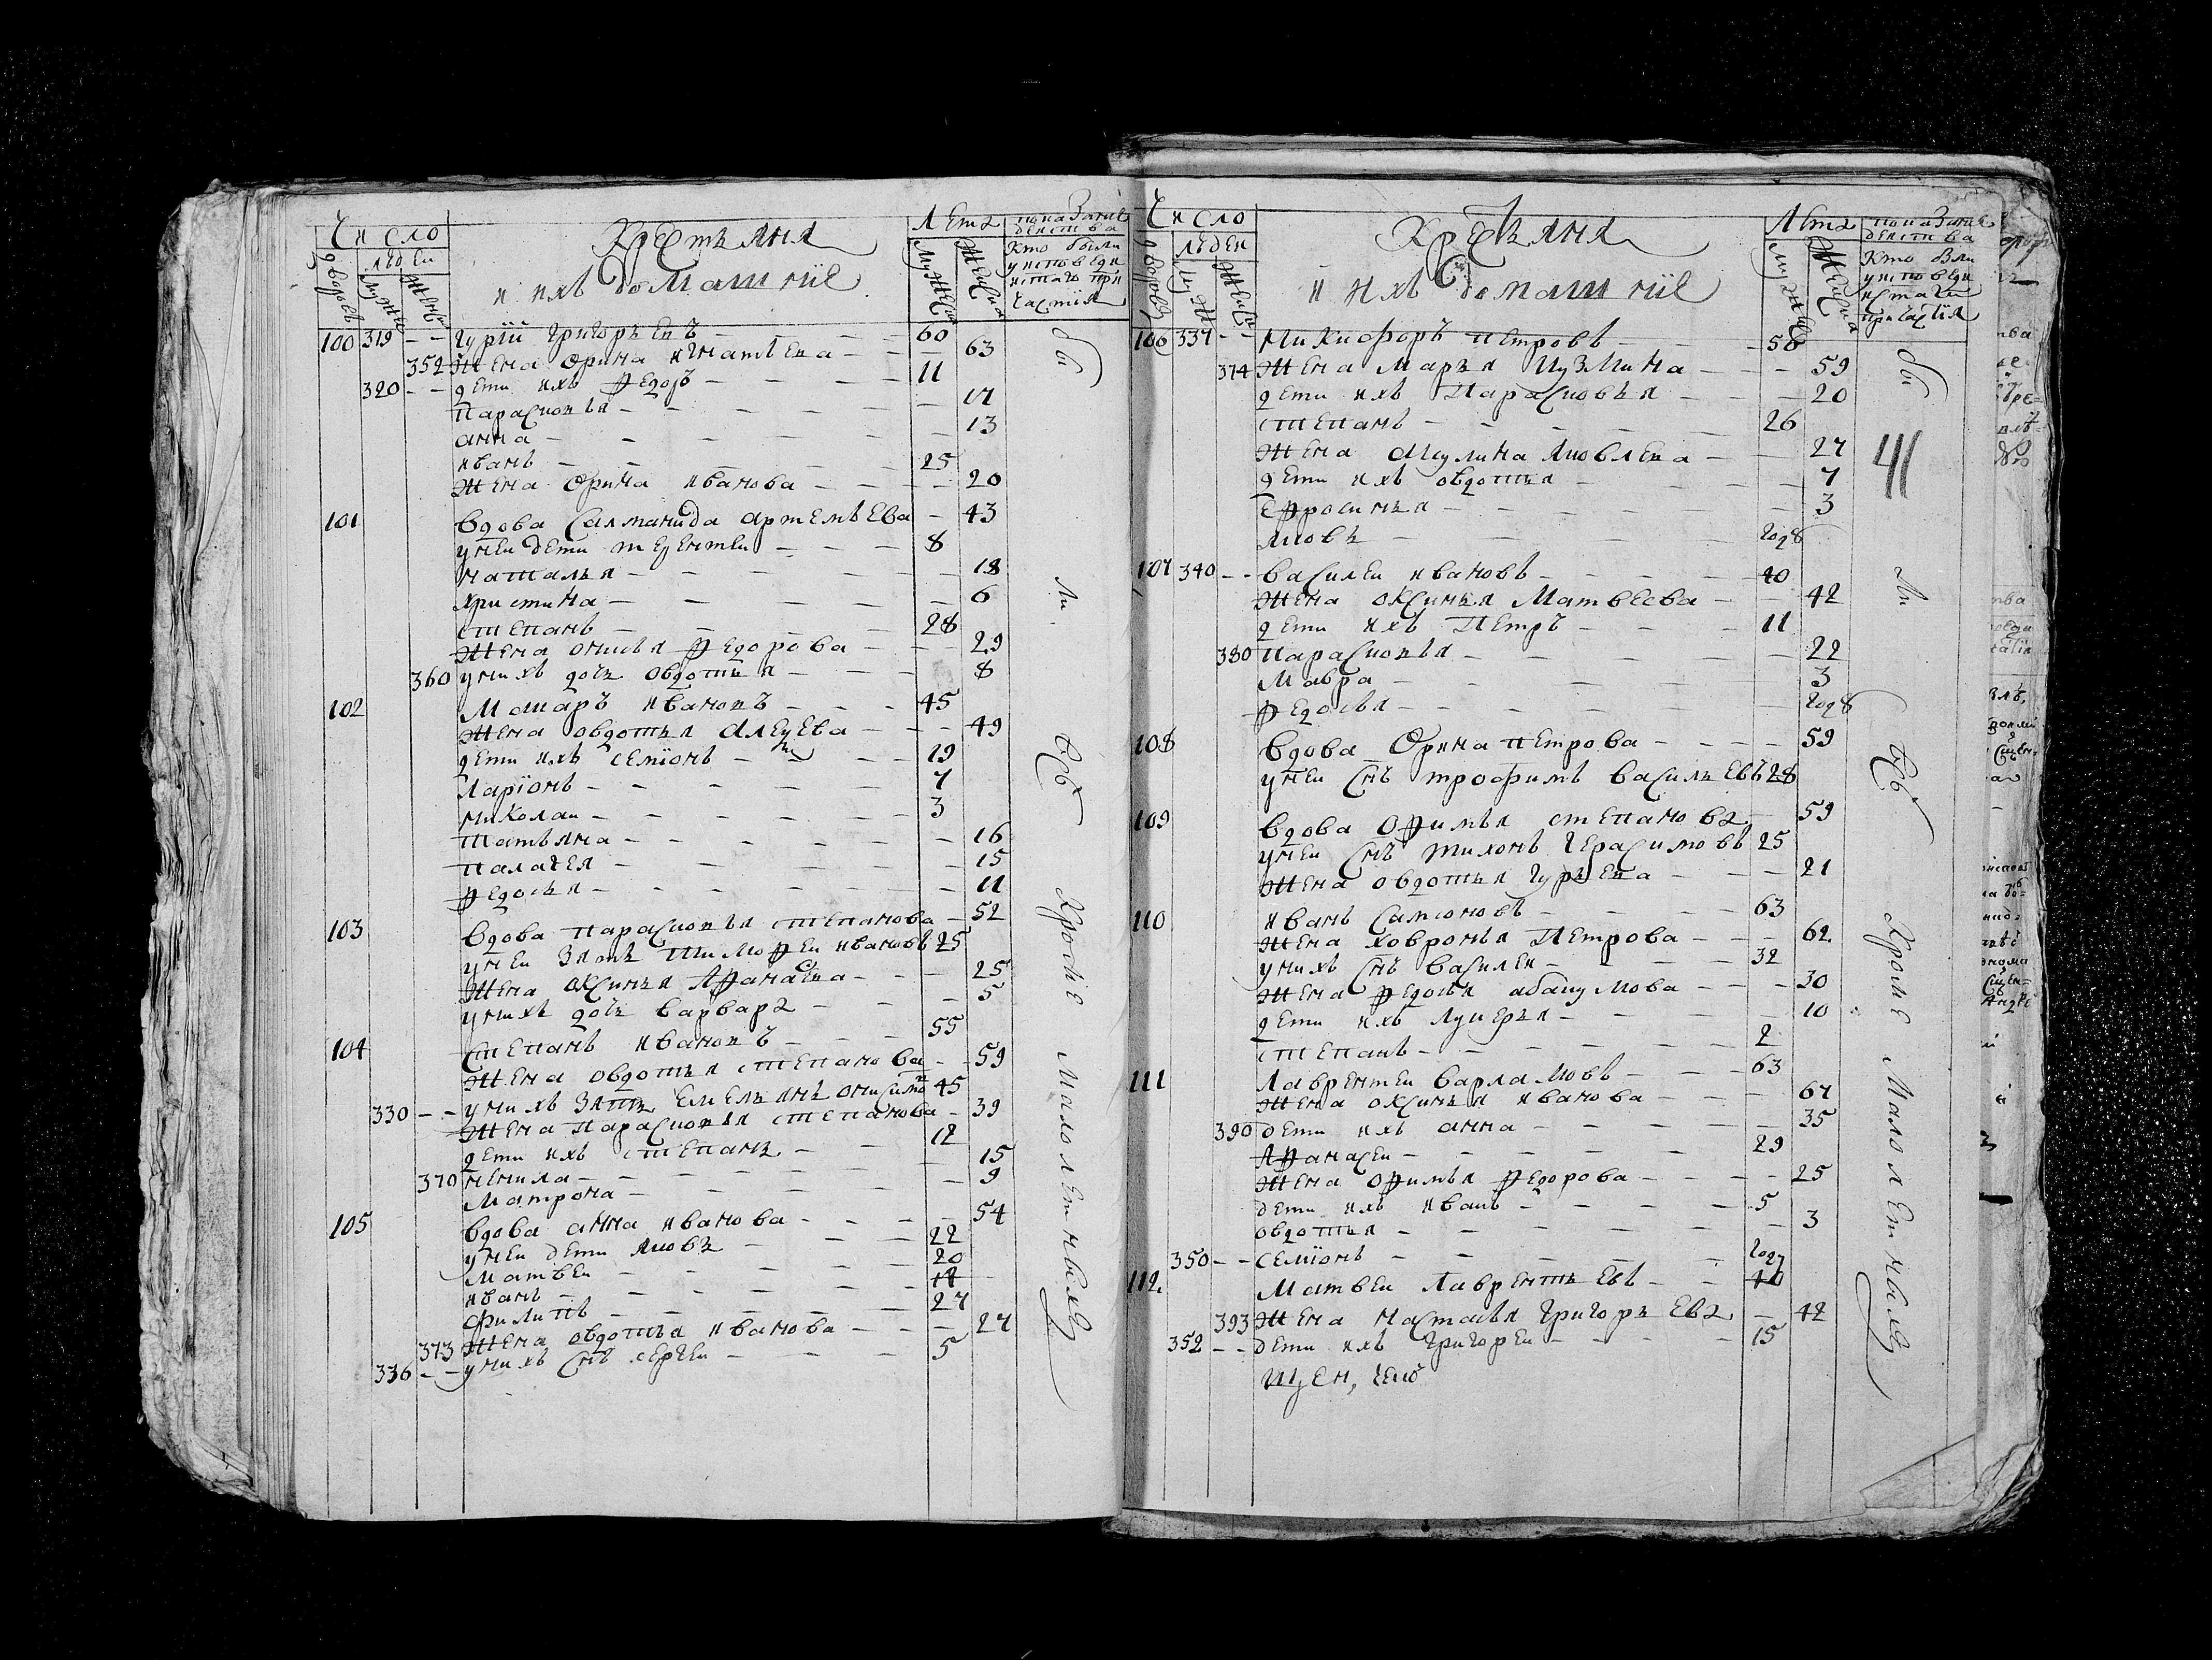 Число
дворовъ
людеи
мужеска
женска
Крестьяня
и ихъ домашнiе
Лета
мужеска
женска
показание
деиства
кто были
у исповеди
и стаго при
частiя
100 319 - - Гурiи Григорьевъ 60
352 жена Орина Игнатьева 63
320 - - дети ихъ Федоръ 11
Парасковья 17
Анна 13
Иванъ 25
жена Орина Иванова 20
101 вдова Саламанида Артемьева 43
у неи дети Терентеи 8
Наталья 18
Христина 6
Степанъ 28
жена Онисья Федорова 29
360 у нихъ дочь Овдотья 8
102 Макаръ Ивановъ 45
жена Овдотья Алеѯева 49
дети ихъ Семiонъ 19
Ларiонъ 7
Николаи 3
Татьяна 16
Палагея 15
Федосья 11
103 вдова Парасковья Степанова 52
у неи зять Тимофеи Ивановъ 25
жена Оксинья Афанасева 25
у нихъ дочь Варвара 5
104 Степанъ Ивановъ 55
жена Овдотья Степанова 59
330 - - у нихъ зять Емельянъ Онисимо 45
жена Парасковья Степанова 39
дети ихъ Степанъ 12
370 Ненила 15
Матрона 9
105 вдова Анна Иванова 54
у неи дети Яковъ 22
Матвеи 20
Иванъ 17
Филипъ 27
373 жена Овдотья Иванова 27
336 - - у нихъ снъ Сергеи 5
были всѣ кроме малолетныхъ
Число
дворовъ
людеи
мужеска
женска
Крестьяня
и ихъ домашнiе
Лета
мужеска
женска
показание
деиства
кто были
у исповеди
и стаго
причастiя
106 337 - - Никифоръ Петровъ 58
374 жена Марья Кузмина 59
дети ихъ Парасковья 20
Степанъ 26
жена Акулина Яковлева 27
дети ихъ Овдотья 7
Ефросинья 3
Яковъ годъ
107 340 - - Василеи Ивановъ 40
жена Оксинья Матвеева 42
дети ихъ Петръ 11
380 Парасковья 22
Мавра 3
Федосья годъ
108 вдова Орина Петрова 59
у неи снъ Трофимъ Васильевъ 28
109 вдова Офимья Степанова 59
у неи снъ Тихонъ Герасимовъ 25
жена Овдотья Гурьева 21
110 Иванъ Самсоновъ 63
жена Ховронья Петрова 62
у нихъ снъ Василеи 32
жена Федосья Абакумова 30
дети ихъ Лукерья 10
Степанъ 2
111 Лаврентеи Варламовъ 63
жена Оксинья Иванова 67
390 дети ихъ Анна 35
Афанасеи 29
жена Офимья Федорова 25
дети ихъ Иванъ 5
Овдотья 3
350 - - Семiонъ годъ
112 Матвеи Лаврентьевъ 40
393 жена Настасья Григорьева 42
352 - - дети ихъ Григореи 15
были всѣ кроме малолетныхъ
41